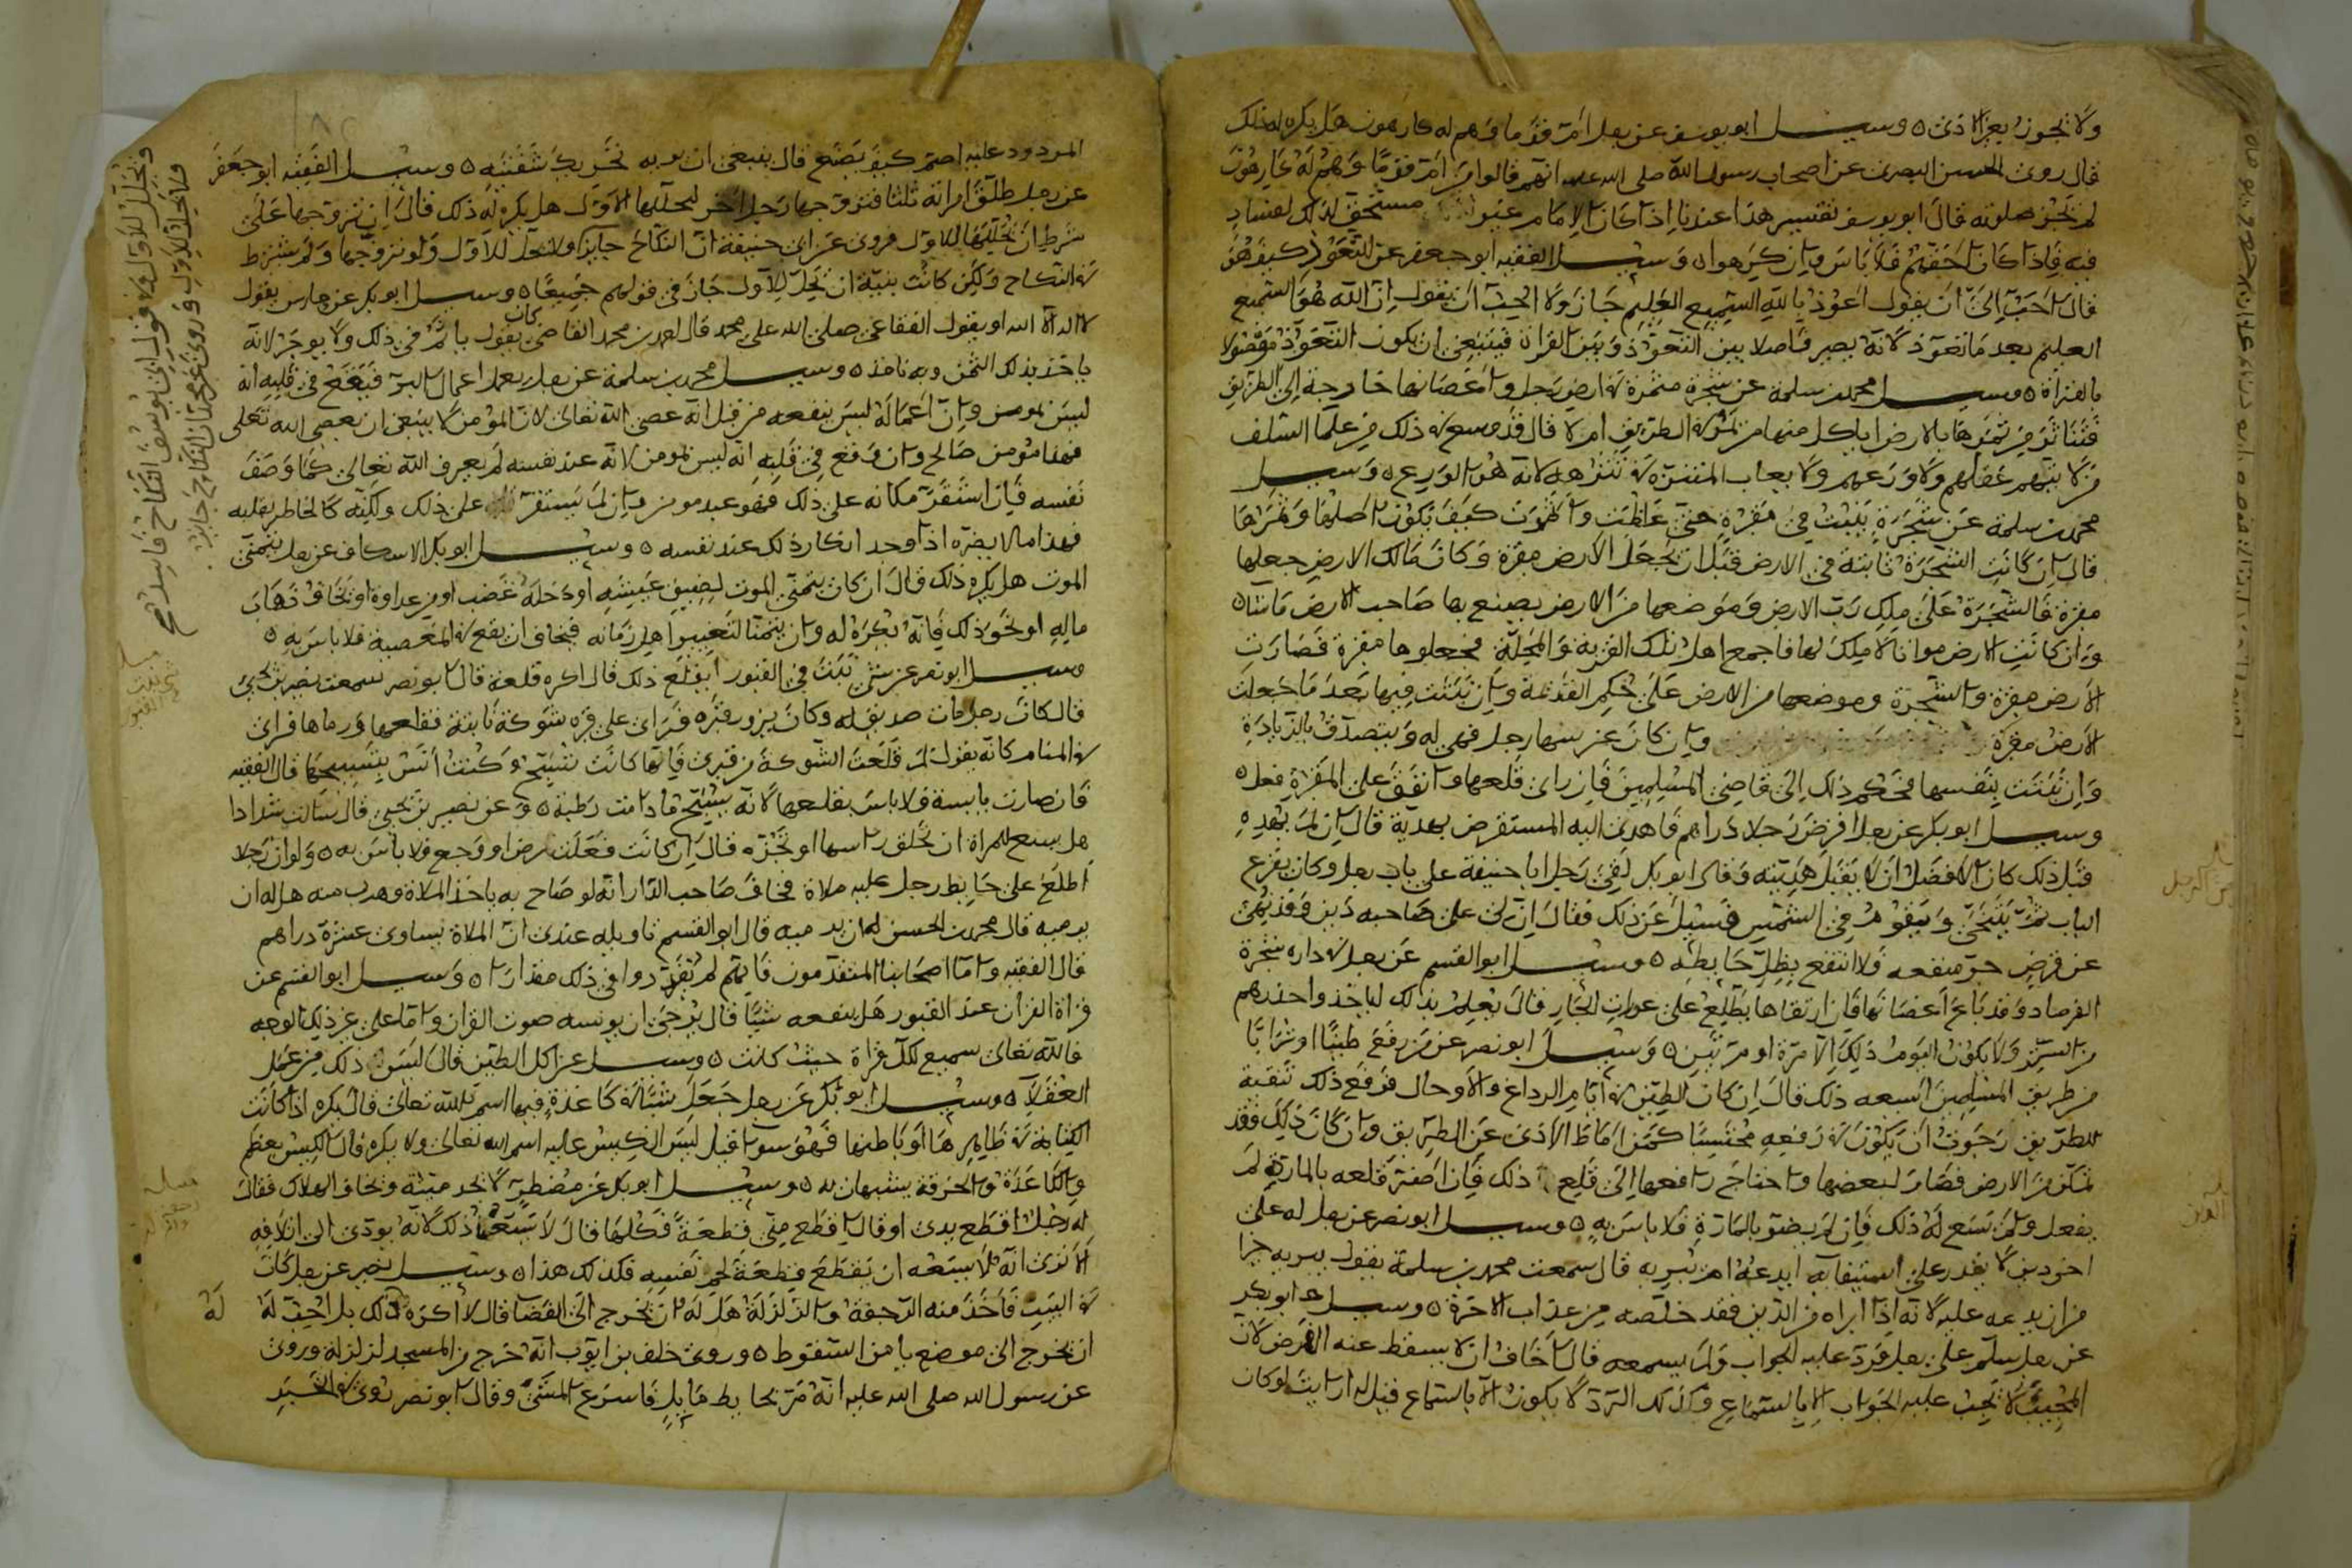 ولا تجوز بغير الاذى ٥ وسيل ابو يوسف عن رجل امّ قوما وهم له كارهون هل يكره له ذلك
قال روى الحسن البصرى عن اصحاب رسول الله صلى الله عليه انهم قالوا من امّ قوما وهم له كارهون
لم تجز صلوته قال ابو يوسف تفسير هذا عندنا اذا كان الامام غير مستحق لذلك لفساد
فيه فاذا كان احقهم فلا باس وان كرهوا ٥ وسيل الفقيه ابو جعفر عن التعوذ كيف هو
قال احب الىّ ان يقول اعوذ بالله السميع العليم جاز ولا احب ان يقول ان الله هو السميع
العليم بعد ما تعوذ لانه يصير فاصلا بين التعوذ وبين القران فينبغى ان يكون التعوذ موصولا
بالقراة ٥ وسيل محمد بن سلمة عن شجرة مثمرة فى ارض رجل واغصانها خارجة الى الطريق
فتناثر من ثمرها بالارض اياكل منها من يمر فى الطريق ام لا قال قد وسع فى ذلك من علما السلف
من لا يتهم عقلهم ولا ورعهم ولا يعاب المتنزه فى تنزهه لانه هو الورع ٥ وسيل
محمد بن سلمة عن شجرة نبتت فى مقبرة حتى عظمت واظهرت كيف يكون اصلها وثمرها
قال ان كانت الشجرة ثابتة فى الارض قبل ان تجعل الارض مقبرة وكان مالك الارض جعلها
مقبرة فالشجرة على ملك رب الارض وموضعها من الارض يصنع بها صاحب الارض ما شا ٥
وان كانت الارض مواتا لا ملك لها فاجمع اهل تلك القرية والمحلة فجعلوها مقبرة فصارت
الارض مقبرة والشجرة وموضعها من الارض على حكم القديمة وان نبتت فيها بعد ما جعلت
الارض مقبرة وان كان غرسها رجل فهى له ويتصدق بالزيادة
وان نبتت بنفسها فحكم ذلك الى قاضى المسلمين فان راى قلعها وانفق على المقبرة فعل ٥
وسيل ابو بكر عن رجل اقرض رجلا دراهم فاهدى اليه المستقرض بهدية قال ان لم يهده
قبل ذلك كان الافضل ان لا يقبل هديته وقال ابو بكر لقى رجل ابا حنيفة على باب رجل وكان يقرع
الباب ثم يتنحى ويقوم فى الشمس فسيل عن ذلك فقال ان لى على صاحبه دين وقد نهى
عن قرض جرّ منفعه فلا انتفع بظل حايطه ٥ وسيل ابو القسم عن رجل فى داره شجرة
الفرصاد وقد باع اغصانها فان ارتقاها يطلع على عورات الجار قال يعلم بذلك لياخذوا حذرهم
من الستر ولا يكون اليوم ذلك الا مرة او مرتين ٥ وسيل ابو نصر عن من رفع طينا او ترابا
من طريق المسلمين ايسعه ذلك قال ان كان الطين فى ايام الرداغ والاوحال فرفع ذلك تنقية
للطريق رجوت ان يكون فى رفعه محتسبا كمن اماط الاذى عن الطريق وان كان ذلك فقد
تمكن من الارض فصار لبعضها واحتاج رافعها الى قلع ذلك فان اضر قلعه بالمارة لم
يفعل ولم يسع له ذلك فان لم يضر بالمارة فلا باس به ٥ وسيل ابو نصر عن رجل له على
اخر دين لا يقدر على استيفايه ايدعه ام يبريه قال سمعت محمد بن سلمة يقول يبريه خيرا
من ان يدعه عليه لانه اذا ابراه من الدين فقد خلصه من عذاب الاخرة ٥ وسيل ابو بكر
عن رجل سلم على رجل فرد عليه الجواب ولم يسمعه قال اخاف ان لا يسقط عنه الفرض لان
المجيب لا يجب عليه الجواب الا بالاستماع وكذلك الرد لا يكون الا باستماع قيل له ارايت لو كان
المردود عليه اصم كيف يصنع قال ينبغى ان يريه تحريك شفتيه ٥ وسيل الفقيه ابو جعفر
عن رجل طلق امراته ثلثا فتزوجها رجل اخر ليحللها للاول هل يكره له ذلك قال ان تزوجها على
شرط ان يحللها للاول فروى عن ابى حنيفة ان النكاح جايز ولا تحل للاول ولو تزوجها ولم يشترط
فى النكاح ولكن كانت بنيّة ان تحل للاول جاز فى قولهم جميعا ٥ وسيل ابو بكر عن حارس يقول
لا اله الا الله او يقول الفقاعى صلى الله على محمد قال احمد بن محمد القاضى كان يقول ياثم فى ذلك ولا يوجر لانه
ياخذ بذلك الثمن وبه ناخذ ٥ وسيل محمد بن سلمة عن رجل يعمل اعمال البر فيقع فى قلبه انه
ليس بمومن وان اعماله ليس ينفعه من قبل انه عصى الله تعالى لان المؤمن لا ينبغى ان يعصى الله تعلى
فهذا مؤمن صالح وان وقع فى قلبه انه ليس بمومن لانه عند نفسه لم يعرف الله تعالى كما وصف
نفسه فان استقر مكانه على ذلك فهو عبد مومن وان لم يستقر على ذلك ولكنه كالخاطر بقلبه
فهذا ما لا يضره اذا وجد انكار ذلك عند نفسه ٥ وسيل ابو بكر الاسكاف عن رجل يتمنى
الموت هل يكره ذلك قال ان كان يتمنى الموت لضيق عيشه او دخله غضب او من عداوة او يخاف ذهاب
ماله او نحو ذلك فانه يكره له وان يتمنا لتغيير اهل زمانه فيخاف ان يقع فى المعصية فلا باس به ٥
وسيل ابو نصر عن شى نبت فى القبور ايقلع ذلك قال اكره قلعه قال ابو نصر سمعت نصير بن يحيى
قال كان رجل مات صديق له وكان يزور قبره فراى على قبره شوكة نابتة فقلعها ورماها فراى
فى المنام كانه يقول لم قلعت الشوكة من قبرى فانها كانت تسبح وكنت انس بتسبيحها قال الفقيه
فان صارت يابسة فلا باس بقلعها لانه يسبح ما دامت رطبة ٥ وعن نصير بن يحيى قال سالت شدادا
هل يسع للمراة ان تحلق راسها او تجزه قال ان كانت فعلت لمرض او وجع فلا باس به ٥ ولو ان رجلا
اطلع على حايط رجل عليه ملاة فخاف صاحب الدار انه لو صاح به ياخذ الملاة وهرب منه هل له ان
يرميه قال محمد بن الحسن له ان يرميه قال ابو القسم تاويله عندى ان الملاة تساوى عشرة دراهم
قال الفقيه واما اصحابنا المتقدمون فانهم لم يقدروا فى ذلك مقدارا ٥ وسيل ابو القسم عن
قراة القران عند القبور هل ينفعه شيئا قال يرجى ان يونسه صوت القران واما على غير ذلك الوجه
فالله تعالى سميع لكل قراة حيث كانت ٥ وسيل عن اكل الطين قال ليس ذلك من عمل
العقلا ٥ وسيل ابو بكر عن رجل جعل شيا فى كاغذة فيها اسم الله تعالى قال يكره اذا كانت
الكتابة فى ظاهرها او باطنها فهو سوا قيل اليس الكيس عليه اسم الله تعالى ولا يكره قال الكيس يعظم
والكاغذة والخرقة يستهان به ٥ وسيل ابو بكر عن مضطر لا يجد ميتة ويخاف الهلاك فقال
له رجل اقطع يدى او قال اقطع منى قطعة فكلها قال لا يسعه ذلك لانه يودى الى اتلافه
الا ترى انه لا يسعه ان يقطع قطعة لحم نفسه فكذلك هذا ٥ وسيل نصير عن رجل كان
فى البيت فاخذ منه الرجفة والزلزلة هل له ان يخرج الى الفضا قال لا اكره ذلك بل احب له
ان يخرج الى موضع يامن السقوط ٥ وروى خلف بن ايوب انه خرج من المسجد لزلزلة وروى
عن رسول الله صلى الله عليه انه مرّ بحايط مايل فاسرع المشى وقال ابو نصر روى فى الخبر
له